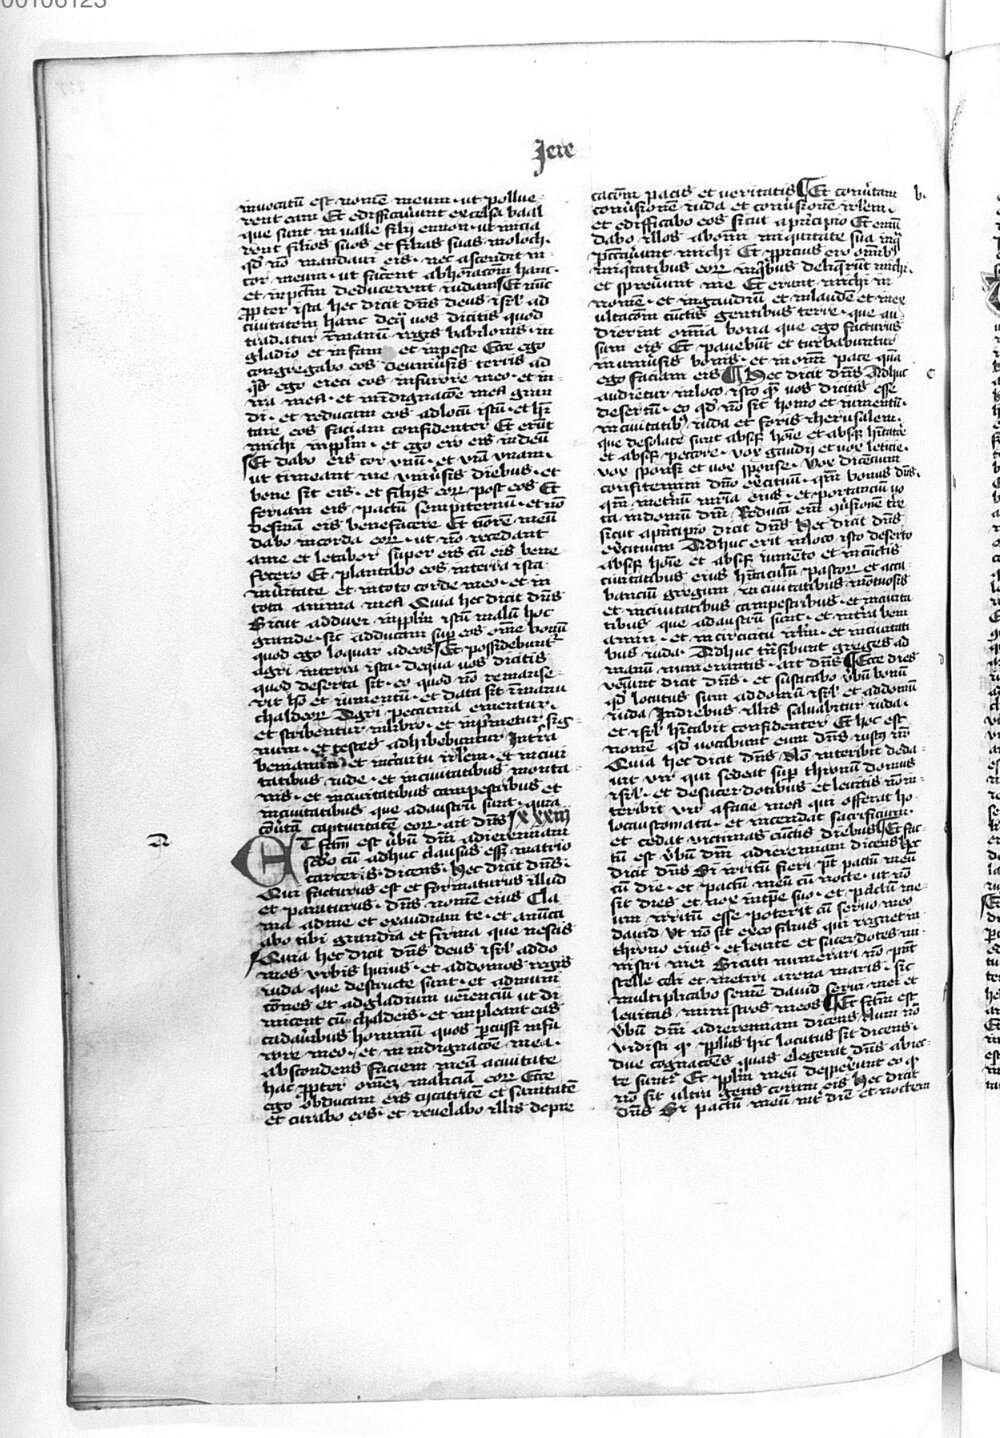 Jere
invocatū est nomē meum · ut pollue
rent eam Et edifficaverūt excelsa baal
que sunt in valle filij ennon · ut inicia
rent filios suos et filias suas moloch ·
qd nō mandavi eis · nec ascendit in
cor meum · ut facerēt abhoīacōm hanc ·
et in pctm̄ deducerent iudam Et nūc
ppter ista hec dicit dn̄s deus isrl̄ ad
civitatem hanc de q̄ vos dicitis quod
tradatur ī manū regis babilonis · in
gladio et in fame et in peste Ecce ego
congregabo eos de univ̄sis terris ad
q̄s ego eieci eos in furore meo · et in
ira mea · et in īdignacōe mea gran
di · et reducam eos ad locū istū · et hīt
tare eos faciam confidenter Et erūt
michi in pplm̄ · et ego ero eis in deū
Et dabo eis cor unū · et viā unam ·
ut timeant me univ̄sis diebus · et
bene sit eis · et filijs eoꝝ post eos Et
feriam eis pactū sempiternū · et nō
desinā eis benefacere Et timorē meū
dabo in corda eoꝝ · ut nō recedant
a me et letabor super eis cū eis bene
fecero Et plantabo eos in terra ista
in v̄itate et in toto corde meo · et in
tota anima mea Quia hec dicit dn̄s
Sicut adduxi in pplm̄ istū malū hoc
grande · sic adducam sup eos om̄e bonū
quod ego loquar ad eos Et possidebunt̄
agri in terra ista · de qua vos dicitis
quod deserta sit · eo quod nō remanse
rit hō et iumentū · et data sit ī manu
chaldeoꝝ Agri peccunia ementur ·
et scribentur in libro · et inp̄metur sig
num · et testes adhibebuntur In t̄ra
beniamin et in circuitu ir̄lem · et in civi
tatibus iude · et in civitatibus monta
nis · et in civitatibus campestibus et
in civitatibus que ad austrū sunt · quia
cōv̄tā captivitatē eoꝝ · ait dn̄s xxxiij
Et fctm̄ est v̄bū dn̄i ad ieremiam
scd̄o cū adhuc clausus esset in atrio
carceris · dicens · Hec dicit dn̄s ·
Qui facturus est et formaturus illud
et paraturus · dn̄s nomē eius Cla
ma ad me et exaudiam te · et annūci
abo tibi grandia et firma que nescis
Quia hec dicit dn̄s deus isrl̄ ad do
mos urbis huius · et ad domos regis
iuda que destructe sunt · et ad muni
cōnes et ad gladium ven̄enciū ut di
micent cū chaldeis · et impleant eas
cadav̄ibus hominū quos p̄cussi in fu
rore meo · et in indignacōe mea ·
abscondens faciem meā a civitate
hac ppter om̄ez maliciā eoꝝ Ecce
ego obducam eis cicatricē et sanitatē
et curabo eos · et revelabo illis depre
cacōm pacis et veritatis Et conv̄tam b·
conv̄sionē iuda et conv̄sionē ir̄lem ·
et edifficabo eos sicut a principio Et emū
dabo illos ab omī iniquitate sua in q̄
peccav̄unt michi Et ppicius ero om̄ib;
iniq̄tatibus eoꝝ in q̄bus deliq̄rūt michi ·
et sprev̄unt me Et erunt michi in
nomē · et in gaudiū et in laudē et in ex
ultacōm cūctis gentibus terre · que au
dierint om̄ia bona que ego facturus
sum eis Et pavebūt et turbabuntur
in univ̄sis bonis · et in om̄i pace quā
ego faciam eis Hec dicit dn̄s Adhuc c
audietur in loco isto q̄ vos dicitis esse
desertū · eo qd nō sit homo et iumentū ·
in civitatib; iuda et foris iherusalem ·
que desolate sunt absq; hoīe et absq; hītatōe
et absq; peccore · vox gaudij et vox leticie ·
vox sponsi et vox sponse · Vox dicencium
confitemini dn̄o ex̄cituū · qm̄ bonus dn̄s ·
qm̄ in et̄nū mīa eius · et portanciū vo
ta in domū dn̄i Reducā eīm cōv̄sionē t̄re
sicut a principio dicit dn̄s Hec dicit dn̄s
ex̄cituum Adhuc erit in loco isto deserto
absq; hoīe et absq; iumēto et in cūctis
civitatibus eius hītaculū pastoꝝ et accu
banciū gregum in civitatibus mōtuosis
et in civitatibus campestibus · et in civita
tibus que ad austrū sunt · et in t̄ra beni
amin · et in circuitu ir̄lm · et in civitati
bus iuda · Adhuc t̄nsibunt greges ad
manū numerantis · ait dn̄s Ecce dies d
veniunt dicit dn̄s · et suscitabo v̄bū bonū
qd locutus sum ad domū isrl̄ et ad domū
iuda In diebus illis salvabitur iuda ·
et isrl̄ hītabit confidenter Et hoc est
nomē qd vocabunt eum dn̄s iustꝰ nr̄
Quia hec dicit dn̄s Nō interibit de da
uit vir qui sedeat sup thronū domus
isrl̄ · et de sacerdotibus et levitis nō in
teribit vir a facie mea qui offerat ho
locaustomata · et incendat sacrificium
et cedat victimas cūctis diebus Et fac
tū est v̄bū dn̄i ad ieremiam dicens Hec
dicit dn̄s Si irritū fieri pt̄ pactū meū
cū die · et pactū meū cū nocte · ut nō
sit dies et nox in tp̄e suo · et pactū me
um irritū esse poterit cū servo meo
david Ut nō sit ex eo filius qui regnet in
throno eius · et levite et sacerdotes mi
nistri mei Sicuti numerari nō p̄nt
stelle celi et metiri arena maris · sic
multiplicabo semē david servi mei et
levitas ministros meos Et fctm̄ est
v̄bū dn̄i ad ieremiam dicens Num nō
vidisti q̄ pplūs hic locutus sit dicens ·
due cognacōes quas elegerat dn̄s abiec
te sunt Et pplm̄ meū despex̄unt eo q̄
nō sit ultra gens coram eis Hec dicit
dn̄s Si pactū meū int̄ diē et noctem